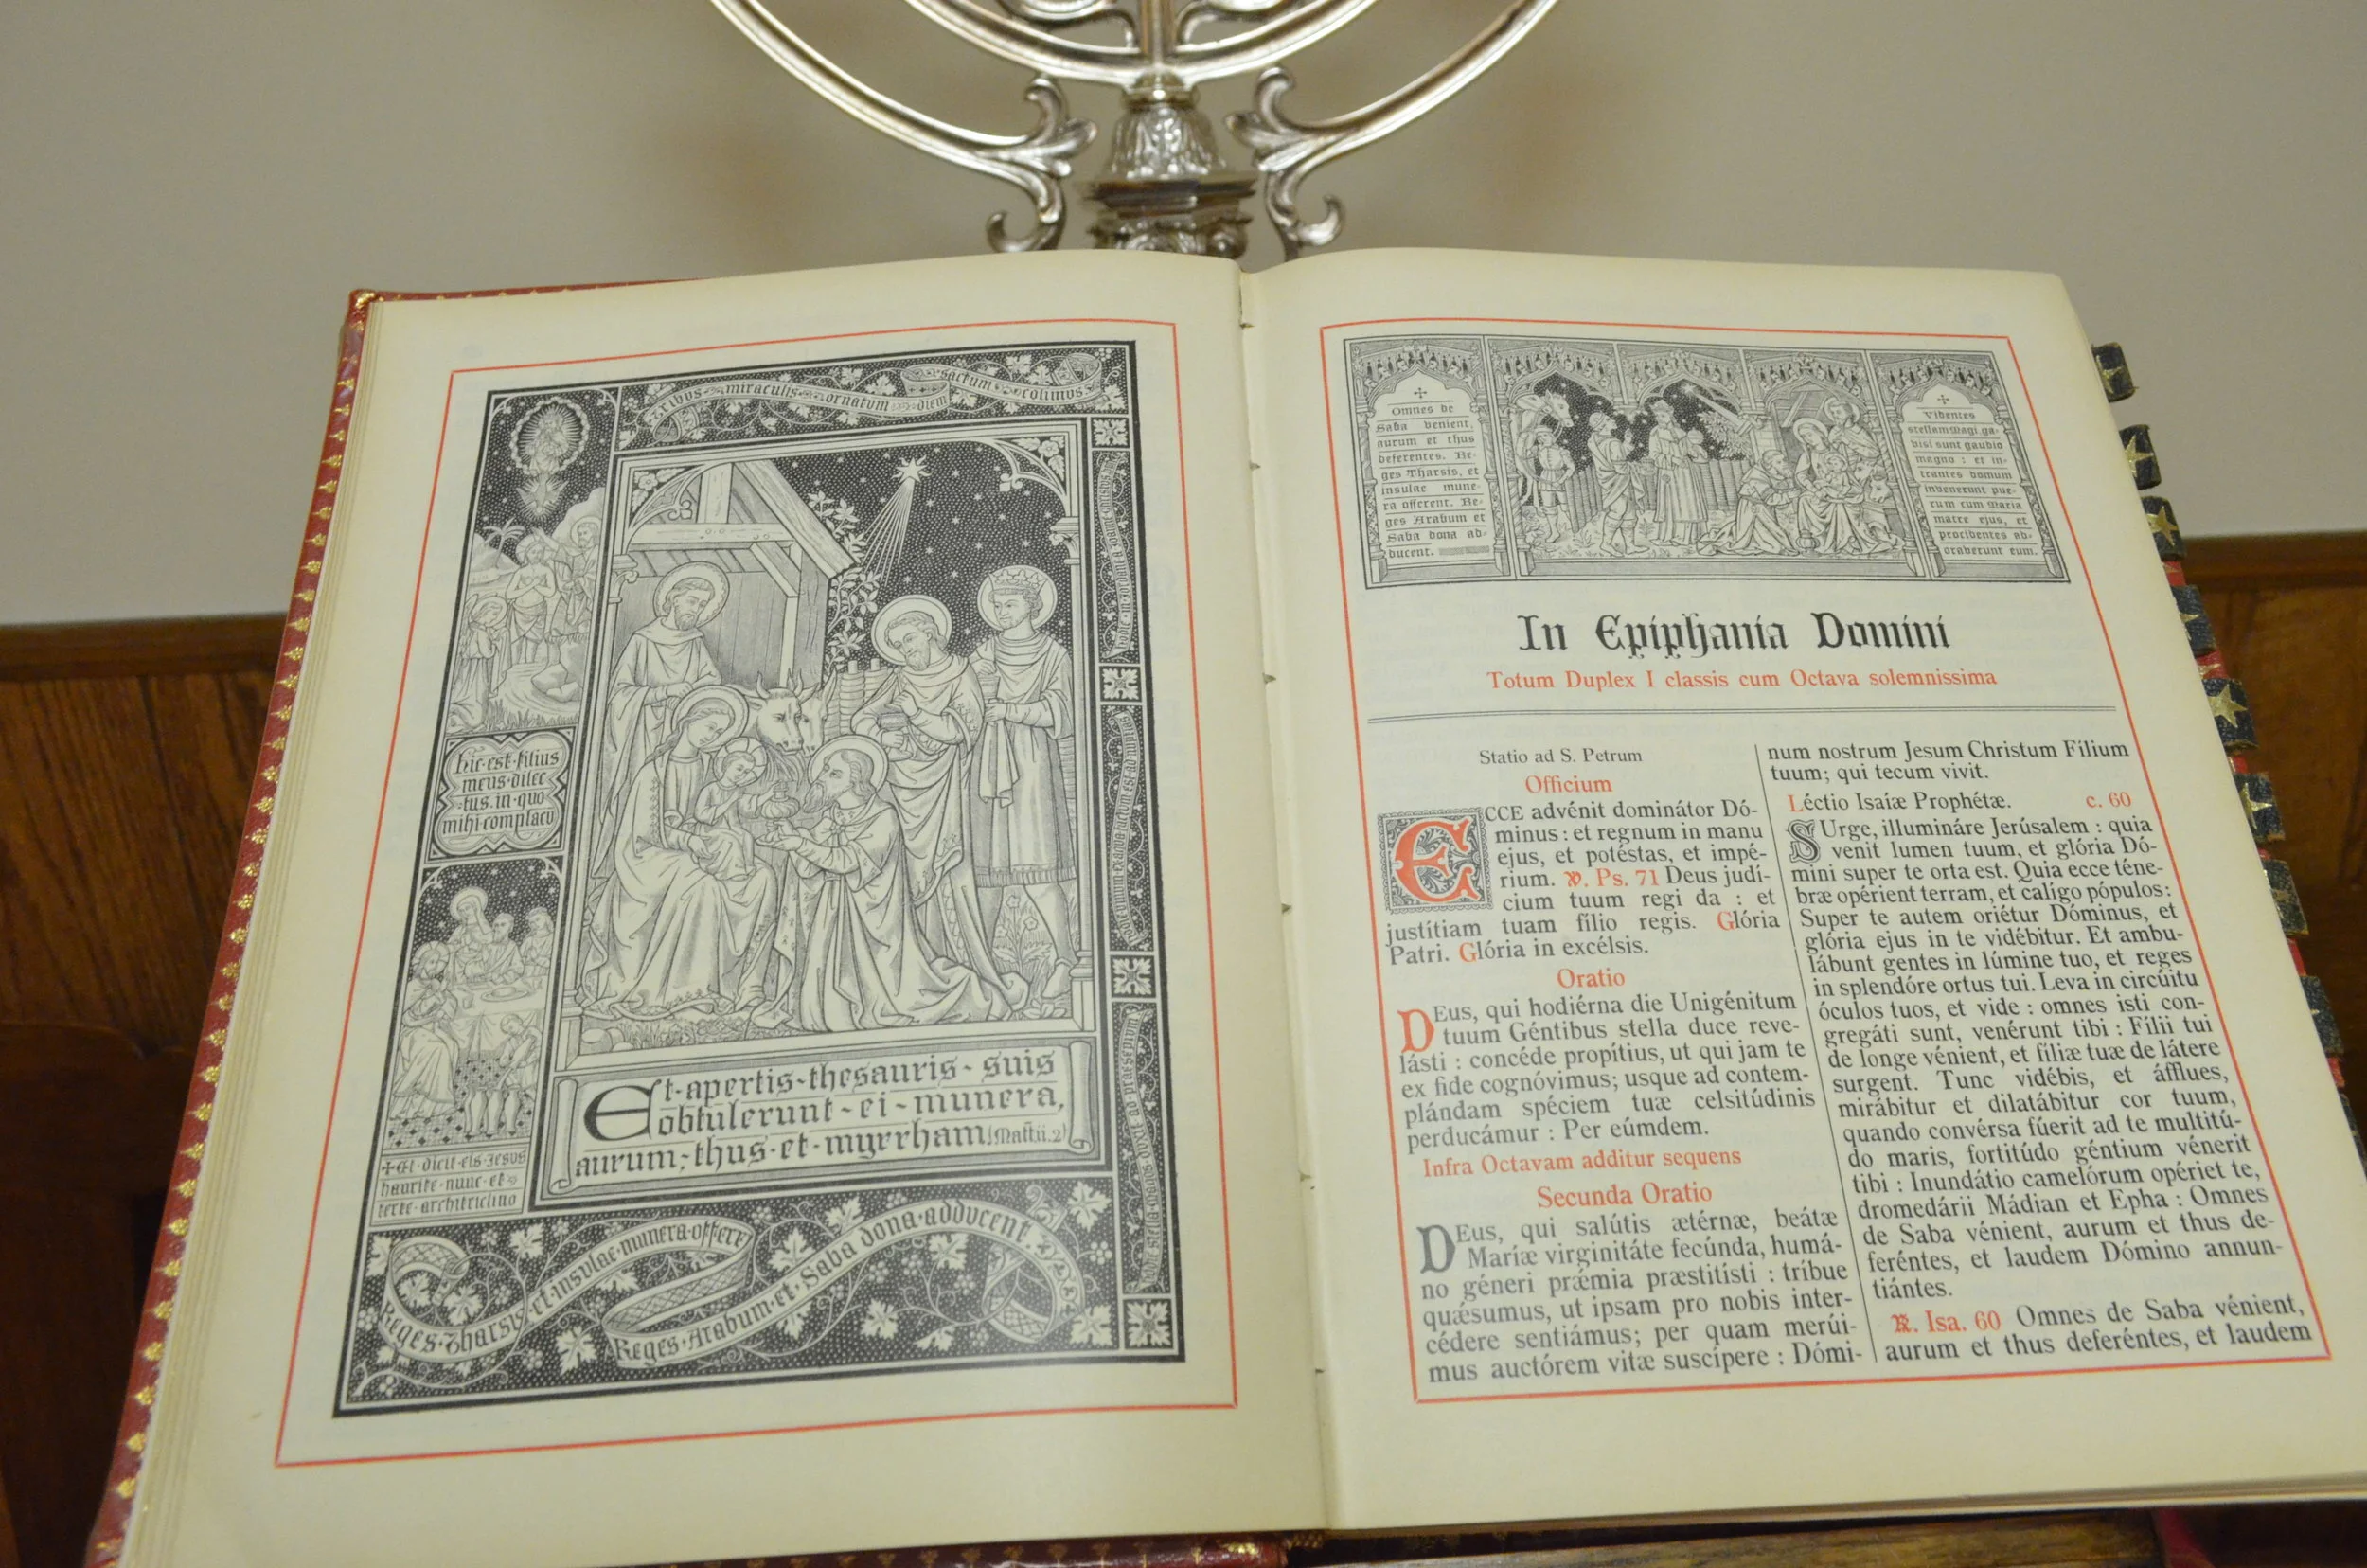 Tribus miraculis ornatum diem sanctum colimus
Hic est filius
meus dilec
tus in quo
mihi complacu
Et apertis thesauris suis
obtulerunt ei munera,
aurum, thus et myrrham (Matt. ii. 2)
+ Et dicit eis Jesus
haurite nunc et
ferte architriclino
Reges Tharsis et insulae munera offere
Reges Arabum et Saba dona adducent.
Omnes de
Saba venient,
aurum et thus
deferentes. Re-
ges Tharsis, et
insulae mune-
ra offerent. Re-
ges Arabum et
Saba dona ad-
ducent.
Videntes
stellam Magi, ga-
visi sunt gaudio
magno : et in-
trantes domum
invenerunt pue-
rum cum Maria
matre ejus, et
procidentes ad-
oraberunt eum.
In Epiphania Domini
Totum Duplex I classis cum Octava solemnissima
Statio ad S. Petrum
Officium
ECCE advénit dominátor Dó-
minus : et regnum in manu
ejus, et potéstas, et impé-
rium. ℣. Ps. 71 Deus judí-
cium tuum regi da : et
justítiam tuam fílio regis. Glória
Patri. Glória in excélsis.
Oratio
DEus, qui hodiérna die Unigénitum
tuum Géntibus stella duce reve-
lásti : concéde propítius, ut qui jam te
ex fide cognóvimus; usque ad contem-
plándam spéciem tuæ celsitúdinis
perducámur : Per eúmdem.
Infra Octavam additur sequens
Secunda Oratio
DEus, qui salútis ætérnæ, beátæ
Maríæ virginitáte fecúnda, humá-
no géneri prǽmia præstitísti : tríbue
quǽsumus, ut ipsam pro nobis inter-
cédere sentiámus; per quam merúi-
mus auctórem vitæ suscípere : Dómi-
num nostrum Jesum Christum Fílium
tuum; qui tecum vivit.
Léctio Isaíæ Prophétæ. c. 60
SUrge, illumináre Jerúsalem : quia
venit lumen tuum, et glória Dó-
mini super te orta est. Quia ecce téne-
bræ opérient terram, et calígo pópulos :
Super te autem oriétur Dóminus, et
glória ejus in te vidébitur. Et ambu-
lábunt gentes in lúmine tuo, et reges
in splendóre ortus tui. Leva in circúitu
óculos tuos, et vide : omnes isti con-
gregáti sunt, venérunt tibi : Fílii tui
de longe vénient, et fíliæ tuæ de látere
surgent. Tunc vidébis, et áfflues,
mirábitur et dilatábitur cor tuum,
quando convérsa fúerit ad te multitú-
do maris, fortitúdo géntium vénerit
tibi : Inundátio camelórum opériet te,
dromedárii Mádian et Epha : Omnes
de Saba vénient, aurum et thus de-
feréntes, et laudem Dómino annun-
tiántes.
℟. Isa. 60 Omnes de Saba vénient,
aurum et thus deferéntes, et laudem